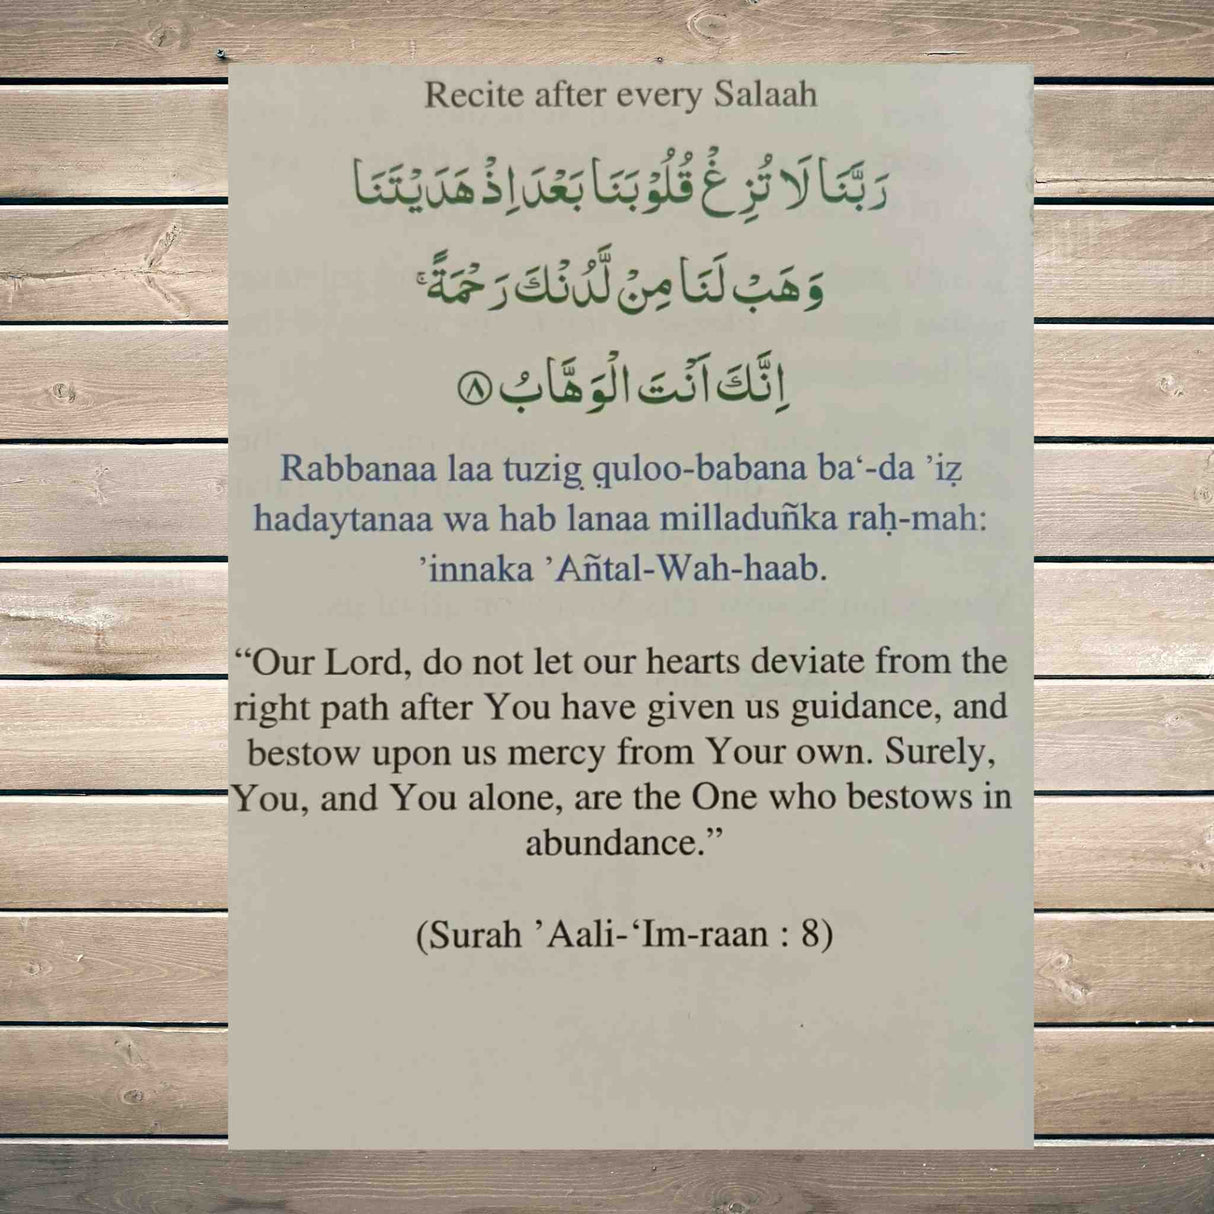 Recite after every Salaah
رَبَّنَا لَا تُزِغْ قُلُوْبَنَا بَعْدَ اِذْ هَدَيْتَنَا
وَهَبْ لَنَا مِنْ لَّدُنْكَ رَحْمَةً ۚ
اِنَّكَ اَنْتَ الْوَهَّابُ ۝٨
Rabbanaa laa tuzig̣ quloo-babana ba‘-da ’iẓ
hadaytanaa wa hab lanaa milladuñka raḥ-mah:
’innaka ’Añtal-Wah-haab.
“Our Lord, do not let our hearts deviate from the
right path after You have given us guidance, and
bestow upon us mercy from Your own. Surely,
You, and You alone, are the One who bestows in
abundance.”
(Surah ’Aali-‘Im-raan : 8)